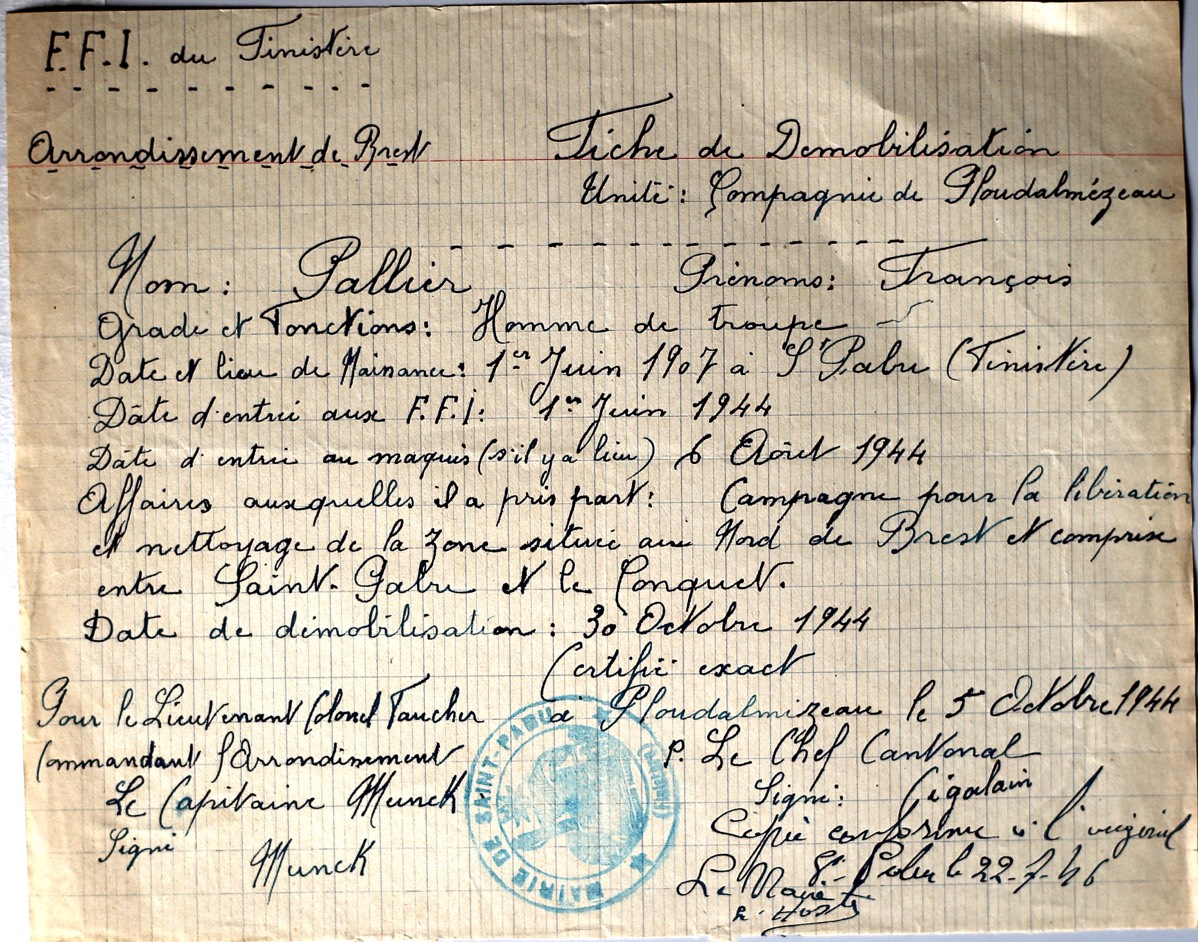 F.F.I. du Finistère
Arrondissement de Brest
Fiche de Démobilisation
Unité : Compagnie de Ploudalmézeau
Nom : Pallier Prénoms : François
Grade et Fonctions : Homme de troupe
Date et lieu de Naissance : 1er Juin 1907 à St Pabu (Finistère)
Dâte d'entrée aux F.F.I : 1er Juin 1944
Dâte d'entrée au maquis (s'il y a lieu) 6 Aôut 1944
Affaires auxquelles il a pris part : Campagne pour la libération
et nettoyage de la zone située au Nord de Brest et comprise
entre Saint-Pabu et le Conquet.
Date de démobilisation : 30 Octobre 1944
Certifié exact
à Ploudalmézeau le 5 Octobre 1944
Pour le Lieutenant Colonel Faucher
Commandant l'Arrondissement
Le Capitaine Munck
Signé
Munck
P. Le Chef Cantonal
Signé : Cigolain
Copie conforme à l'original
St Pabu le 22-7-46
Le Maire
L'Hostis
MAIRIE DE SAINT-PABU